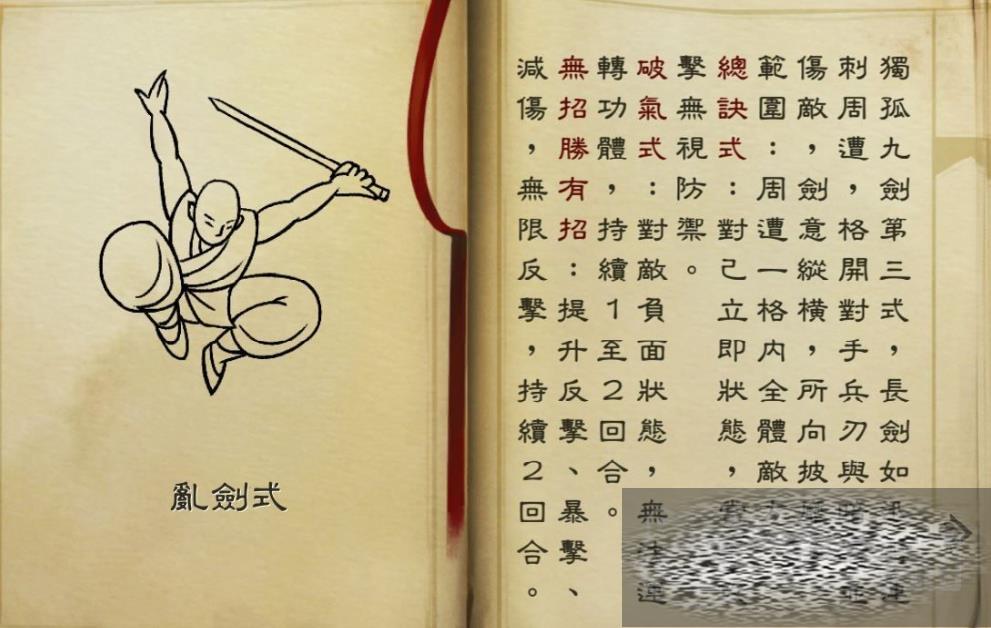 獨孤九劍第三式，長劍如
刺周遭，格開對手兵刃與
傷敵，劍意縱橫，所向披
範圍：周遭一格內全體敵
總訣式：對己立即狀態，
擊無視防禦。
破氣式：對敵負面狀態，無
轉功體，持續1至2回合。
無招勝有招：提升反擊、暴擊、
減傷，無限反擊，持續2回合。
亂劍式